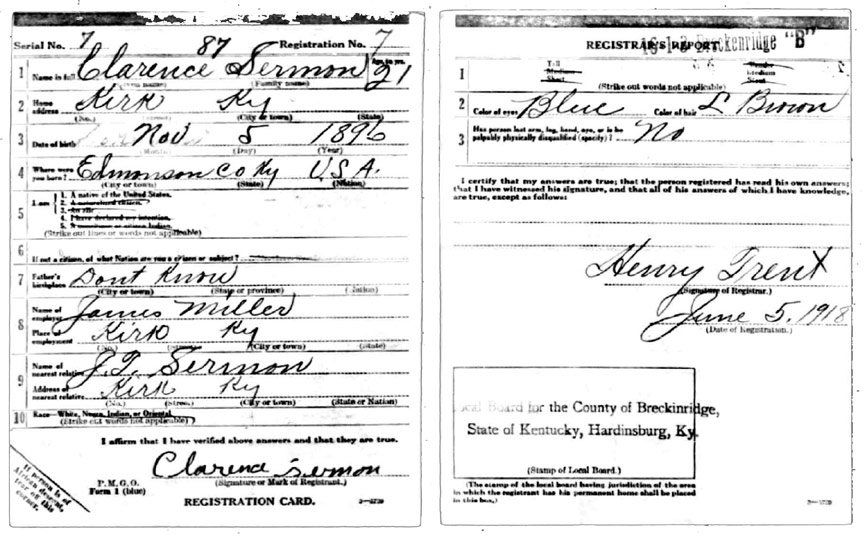 Serial No. 7 87 Registration No. 7
1 Name in full Clarence Sermon Age, in yrs. 21
(Family name)
2 Home address Kirk Ky
(No.) (City or town) (State)
3 Date of birth Nov 5 1896
(Day) (Year)
4 Where were you born? Edmonson Co Ky U.S.A.
(City or town) (State) (Nation)
5 I am
1. A native of the United States.
2. A naturalized citizen.
3. An alien
4. I have declared my intention.
5. A noncitizen or citizen Indian.
(Strike out lines or words not applicable)
6 If not a citizen, of what Nation are you a citizen or subject?
7 Father's birthplace Dont Know
(City or town) (State or province) (Nation)
8 Name of employer James Miller
Place of employment Kirk Ky
(No.) (Street) (City or town) (State)
9 Name of nearest relative J.T. Sermon
Address of nearest relative Kirk Ky
(No.) (Street) (City or town) (State or Nation)
10 Race—White, Negro, Indian, or Oriental
(Strike out words not applicable)
I affirm that I have verified above answers and that they are true.
Clarence Sermon
P.M.G.O. (Signature or Mark of Registrant.)
Form 1 (blue)
REGISTRATION CARD.
If person is of
African descent,
tear off this
corner.
16-1-2 Breckenridge "B"
REGISTRAR'S REPORT
1 Tall Slender
Medium Medium
Short Stout
(Strike out words not applicable)
2 Color of eyes Blue Color of hair L Brown
3 Has person lost arm, leg, hand, eye, or is he
palpably physically disqualified (specify)? No
I certify that my answers are true; that the person registered has read his own answers;
that I have witnessed his signature, and that all of his answers of which I have knowledge,
are true, except as follows:
Henry Trent
(Signature of Registrar.)
June 5, 1918
(Date of Registration.)
Local Board for the County of Breckinridge,
State of Kentucky, Hardinsburg, Ky.
(Stamp of Local Board.)
(The stamp of the local board having jurisdiction of the area
in which the registrant has his permanent home shall be placed
in this box.)